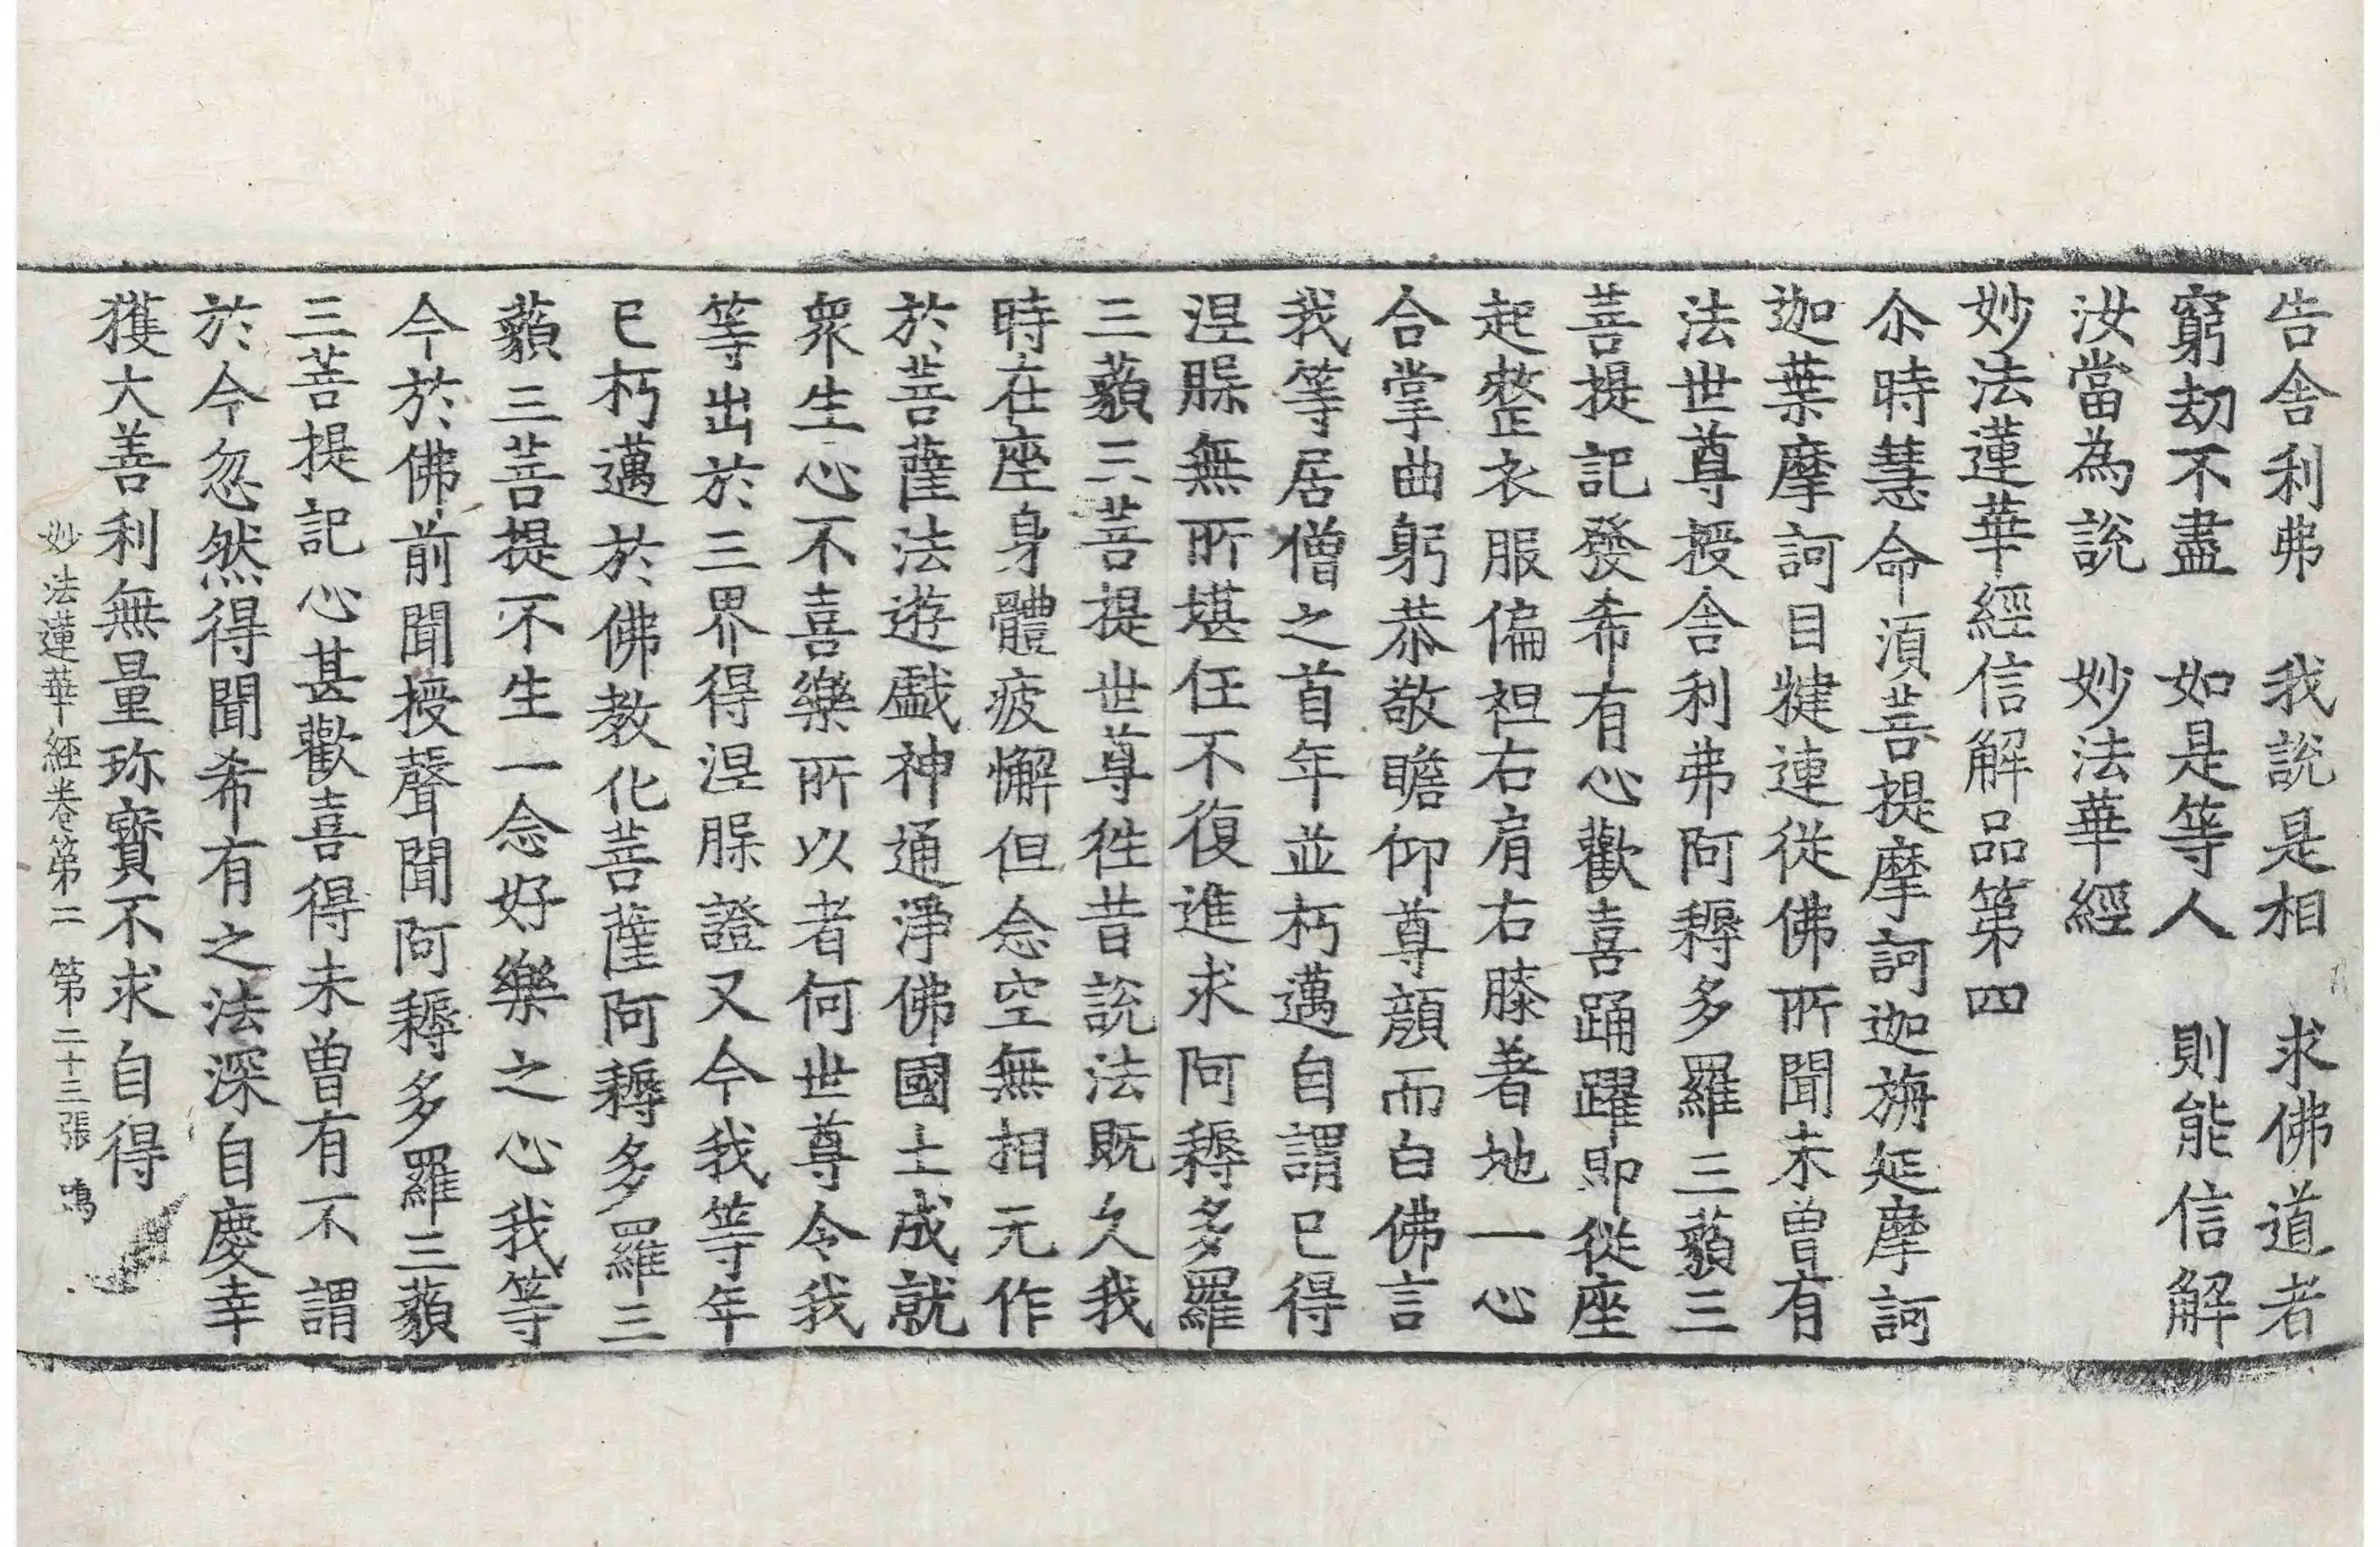 告舍利弗　我說是相　求佛道者
窮劫不盡　如是等人　則能信解
汝當為說　妙法華經
妙法蓮華經信解品第四
尒時慧命湏菩提摩訶迦旃延摩訶
迦葉摩訶目揵連從佛所聞未曾有
法世尊授舍利弗阿耨多羅三藐三
菩提記發希有心歡喜踊躍即從座
起整衣服偏袒右肩右膝著地一心
合掌曲躬恭敬瞻仰尊顏而白佛言
我等居僧之首年並朽邁自謂已得
涅槃無所堪任不復進求阿耨多羅
三藐三菩提世尊徃昔說法既久我
時在座身體疲懈但念空無相无作
於菩薩法遊戲神通淨佛國土成就
衆生心不喜樂所以者何世尊令我
等出於三界得涅槃證又今我等年
已朽邁於佛教化菩薩阿耨多羅三
藐三菩提不生一念好樂之心我等
今於佛前聞授聲聞阿耨多羅三藐
三菩提記心甚歡喜得未曾有不謂
於今忽然得聞希有之法深自慶幸
獲大善利無量珎寶不求自得
妙法蓮華經卷第二　第二十三張